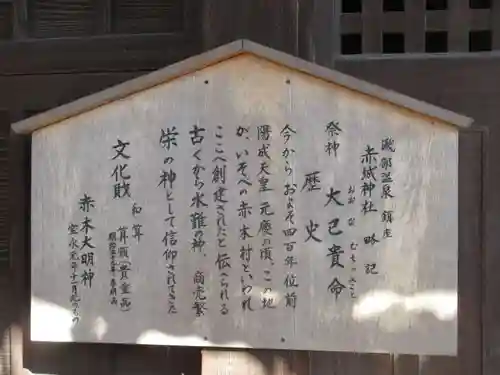 磯部温泉 鎮座
赤城神社 略記
おおなむちのみこと
祭神 大己貴命
歴史
今からおよそ四百年位前
陽成天皇 元慶の頃、この地
が、いそべの赤木村といわれ
ここへ創建されたと伝られる
古くから水難の神、商売繁
栄の神として信仰されてきた
文化財 和算
算額(貴重品)
赤木大明神